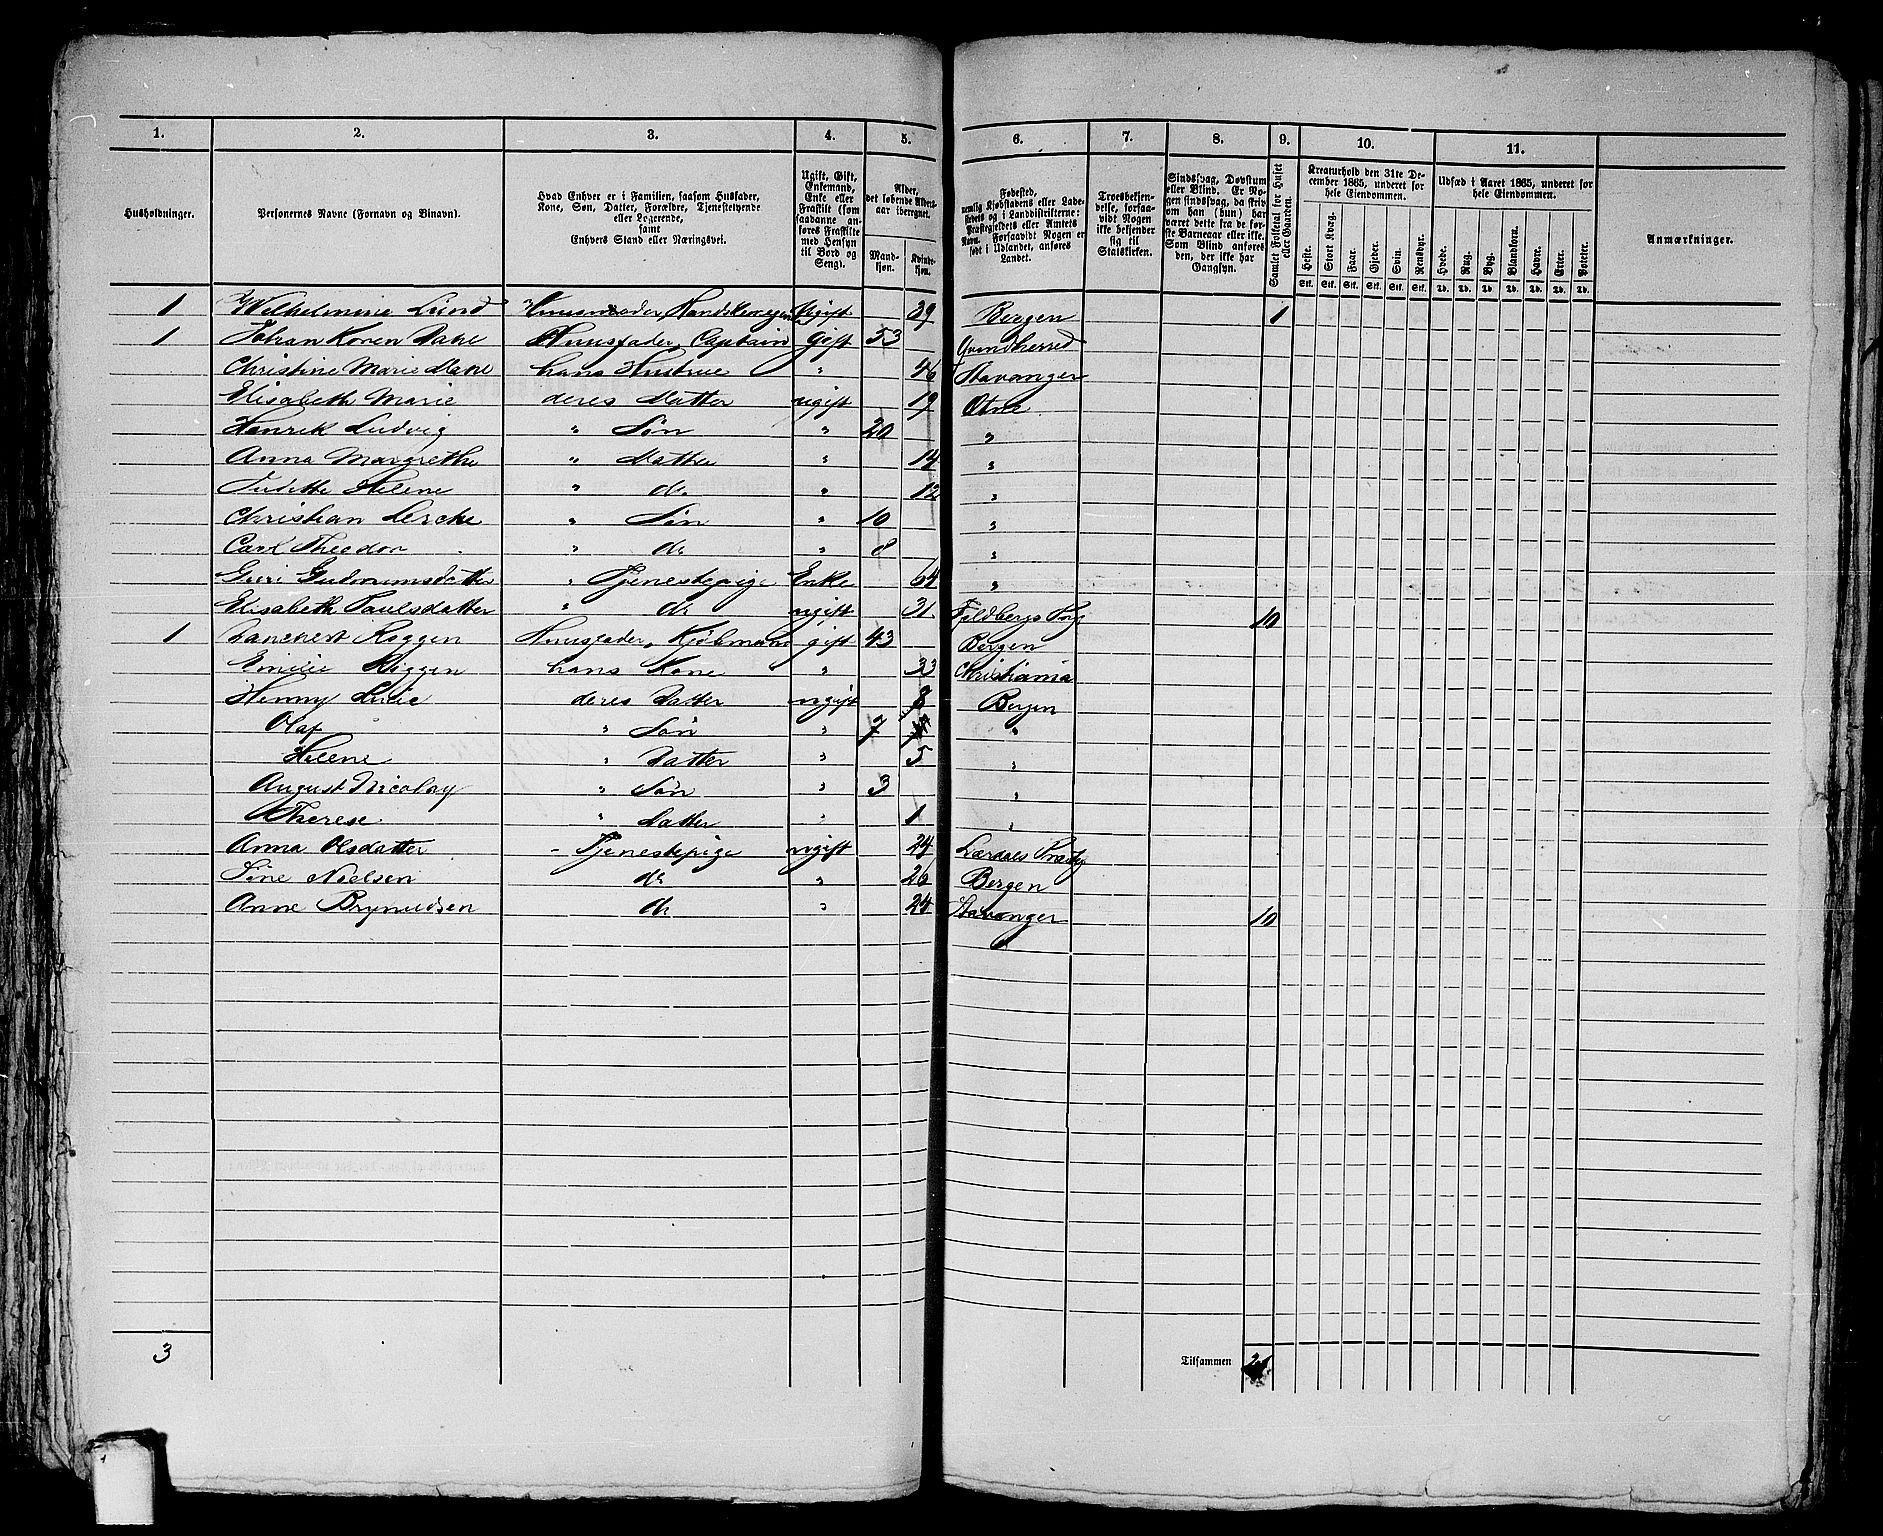 1. 2. 3. 4. 5. 6. 7. 8. 9. 10. 11.
Husholdninger.
Personernes Navne (Fornavn og Binavn).
Hvad Enhver er i Familien, saasom Husfader,
Kone, Søn, Datter, Forældre, Tjenestetyende
eller Logerende,
samt
Enhvers Stand eller Næringsvei.
Ugift, Gift,
Enkemand,
Enke eller
Fraskilt (som
saadanne an-
føres Fraskilte
med Hensyn
til Bord og
Seng).
Alder,
det løbende Alders-
aar iberegnet.
Mand-
kjøn.
Kvinde-
kjøn.
Fødested,
nemlig Kjøbstadens eller Lade-
stedets og i Landdistrikterne:
Præstegjeldets eller Amtets
Navn. Forsaavidt Nogen er
født i Udlandet, anføres
Landet.
Troesbekjen-
delse, forsaa-
vidt Nogen
ikke bekjender
sig til
Statskirken.
Sindssvag, Døvstum
eller Blind. Er No-
gen sindssvag, da skriv
om han (hun) har
været dette fra de før-
ste Barneaar eller ikke.
Som Blind anføres
den, der ikke har
Gangsyn.
Samlet Folketal for Huset
eller Gaarden.
Kreaturhold den 31te De-
cember 1865, underet for
hele Eiendommen.
Heste. Stort Kvæg. Faar. Gjeder. Svin. Rensdyr.
Stk. Stk. Stk. Stk. Stk. Stk.
Udsæd i Aaret 1865, underet for
hele Eiendommen.
Hvede. Rug. Byg. Blandkorn. Havre. Erter. Poteter.
Td. Td. Td. Td. Td. Td. Td.
Anmærkninger.
1 Wilhelmine Lund ugift 39 Bergen 1
1 Johan Koren Dahl Huusfader, Captain gift 53 Qvindherred
Christine Marie Dahl hans Hustrue " 46 Stavanger
Elisabeth Marie deres Datter ugift 19 Etne
Henrik Ludvig " Søn " 20 "
Anna Margrethe " Datter " 14 "
Helene " do " 12 "
Christian Lerche " Søn " 10 "
Carl Theodor " do " 8 "
Guri Gudmunsdatter " Tjenestepige Enke 64 "
Elisabeth Paulsdatter " do ugift 31 10
1 Huusfader, Kjøbmand gift 43 Bergen
Emilie hans Kone " 33 Christiania
Henny Lucie deres Datter ugift 8 Bergen
Olaf " Søn " 7 "
Helene " Datter " 5 "
August Nicolay " Søn " 3 "
Therese " Datter " 1 "
Anna Olsdatter - Tjenestepige ugift 24
Sine Nielsen do " 26 Bergen
Anne Brynildsen do " 24 Stavanger 10
3 Tilsammen 21